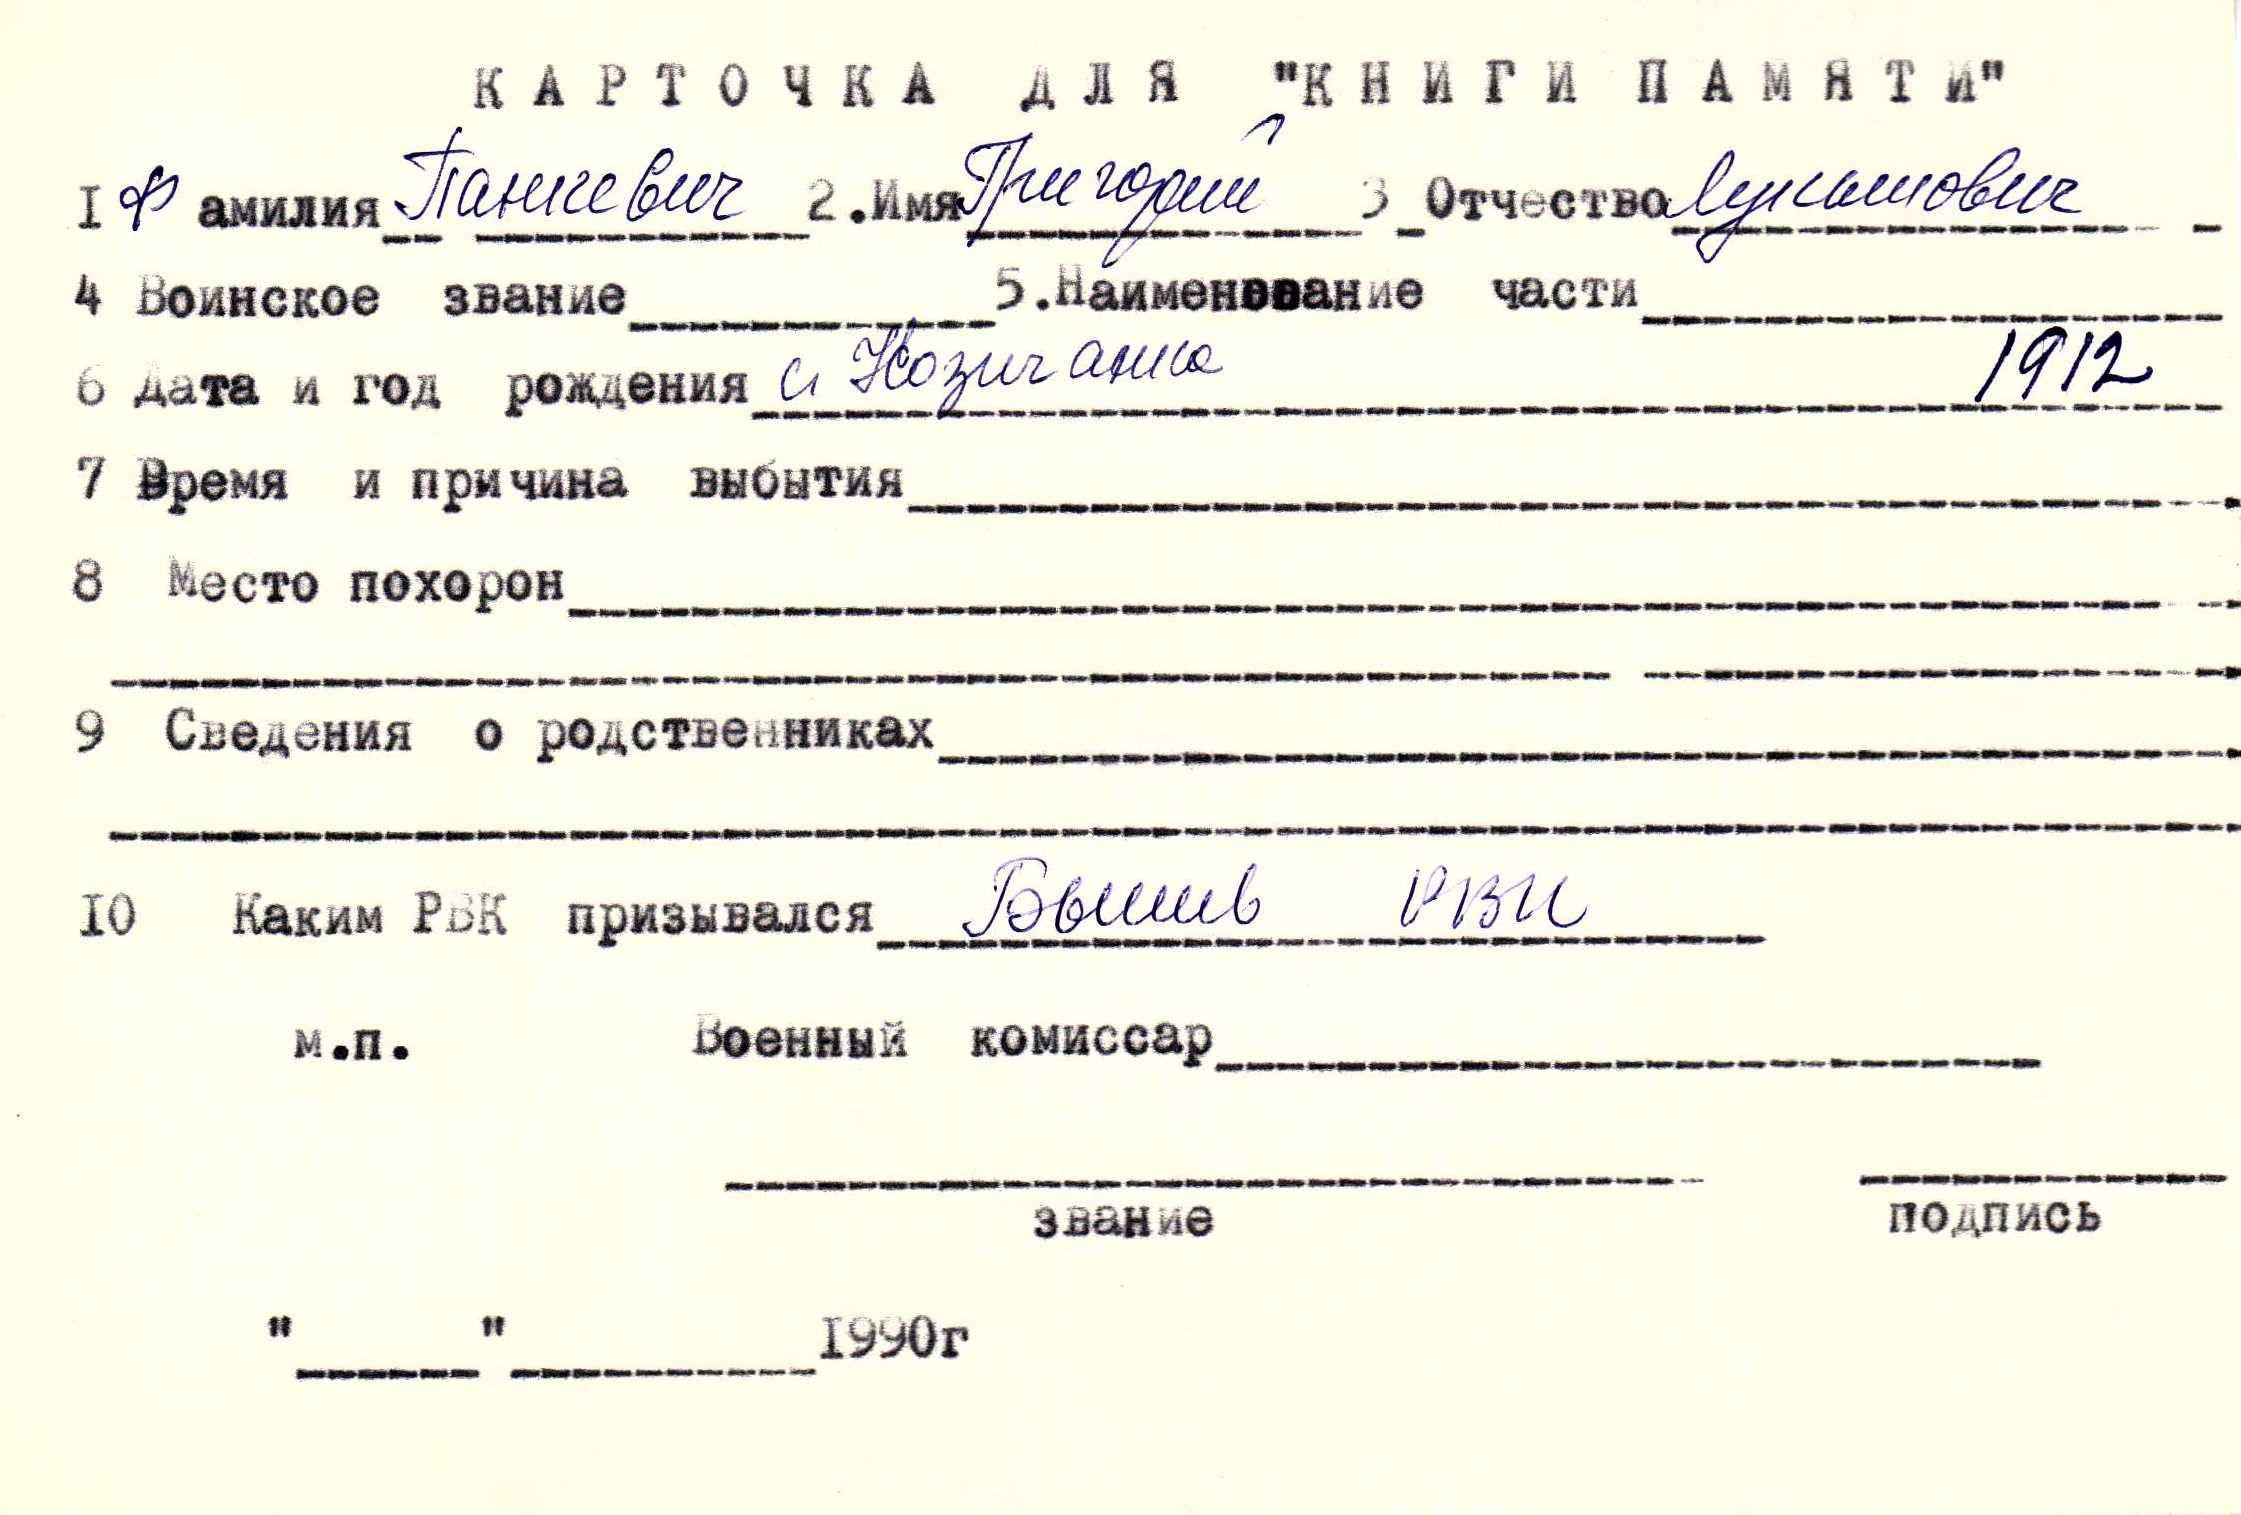 КАРТОЧКА ДЛЯ "КНИГИ ПАМЯТИ"
I Фамилия Панкевич 2.Имя Григорий 3 Отчество Лукашович
4 Воинское звание 5.Наименование части
6 Дата и год рождения с Козичанка 1912
7 Время и причина выбытия
8 Место похорон
9 Сведения о родственниках
IO Каким РВК призывался Бышив РВК
м.п. Военный комиссар
звание подпись
" " I990г